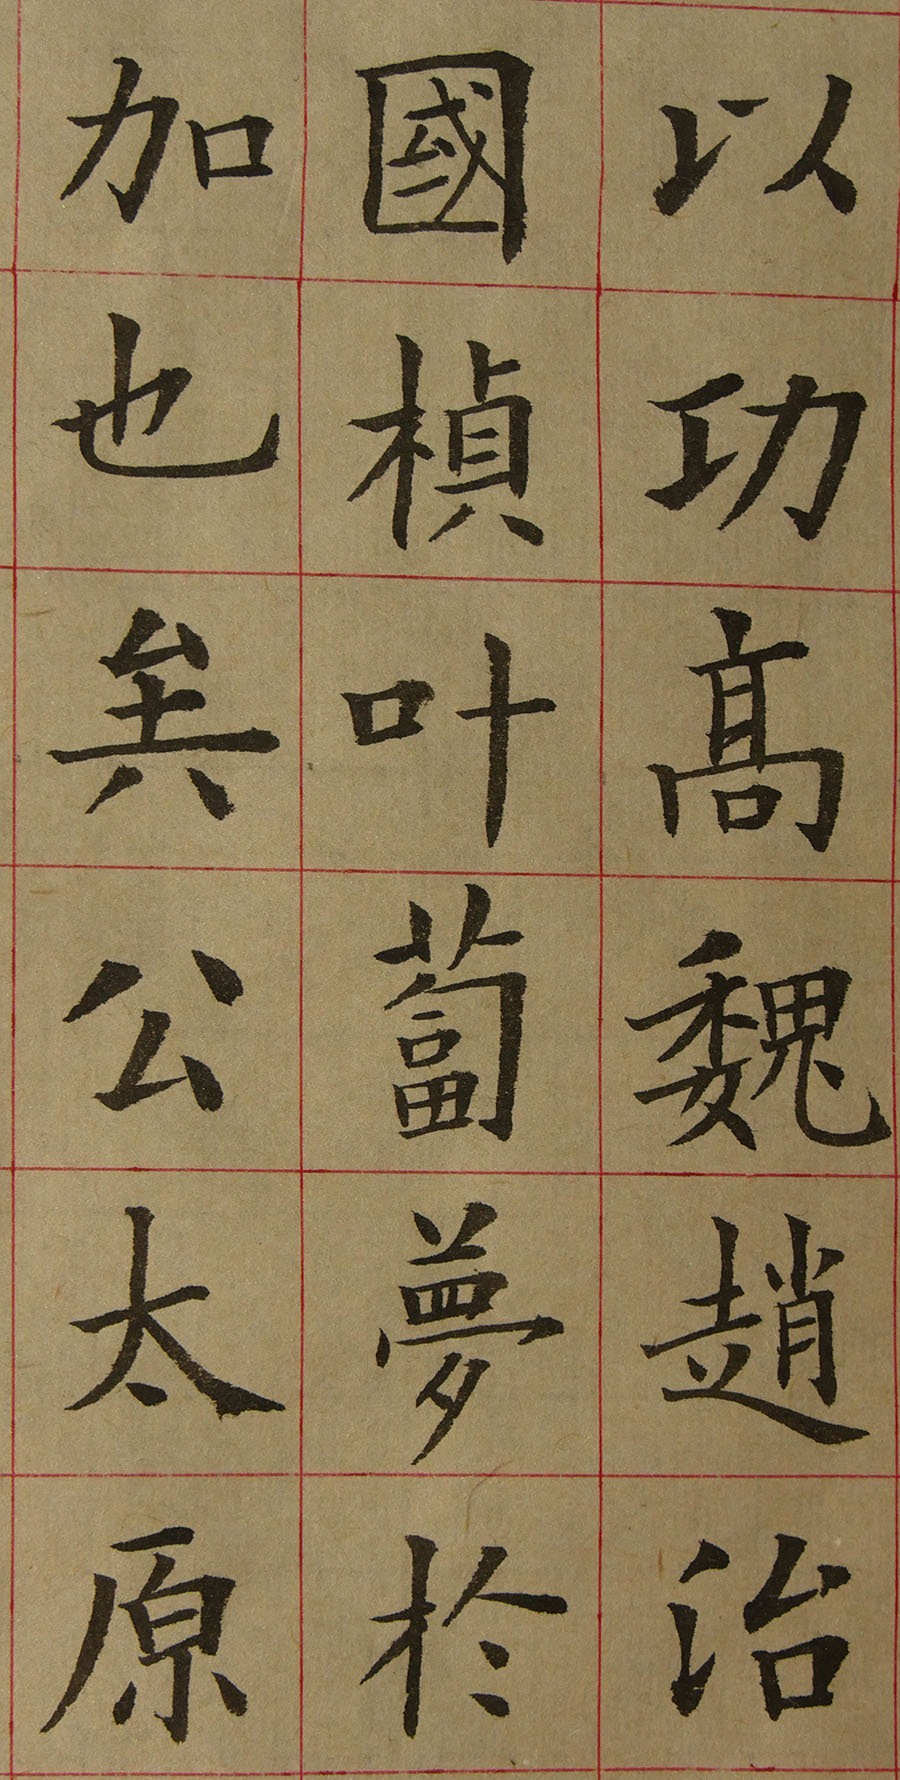 以功髙魏趙治
國楨叶蔔夢於
加也矣公太原